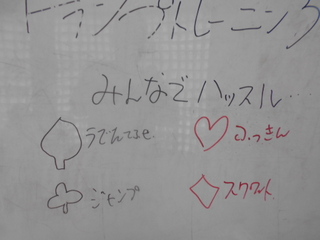 トランプトレーニング
みんなでハッスル…
うでたてふせ ふっきん
ジャンプ スクワット